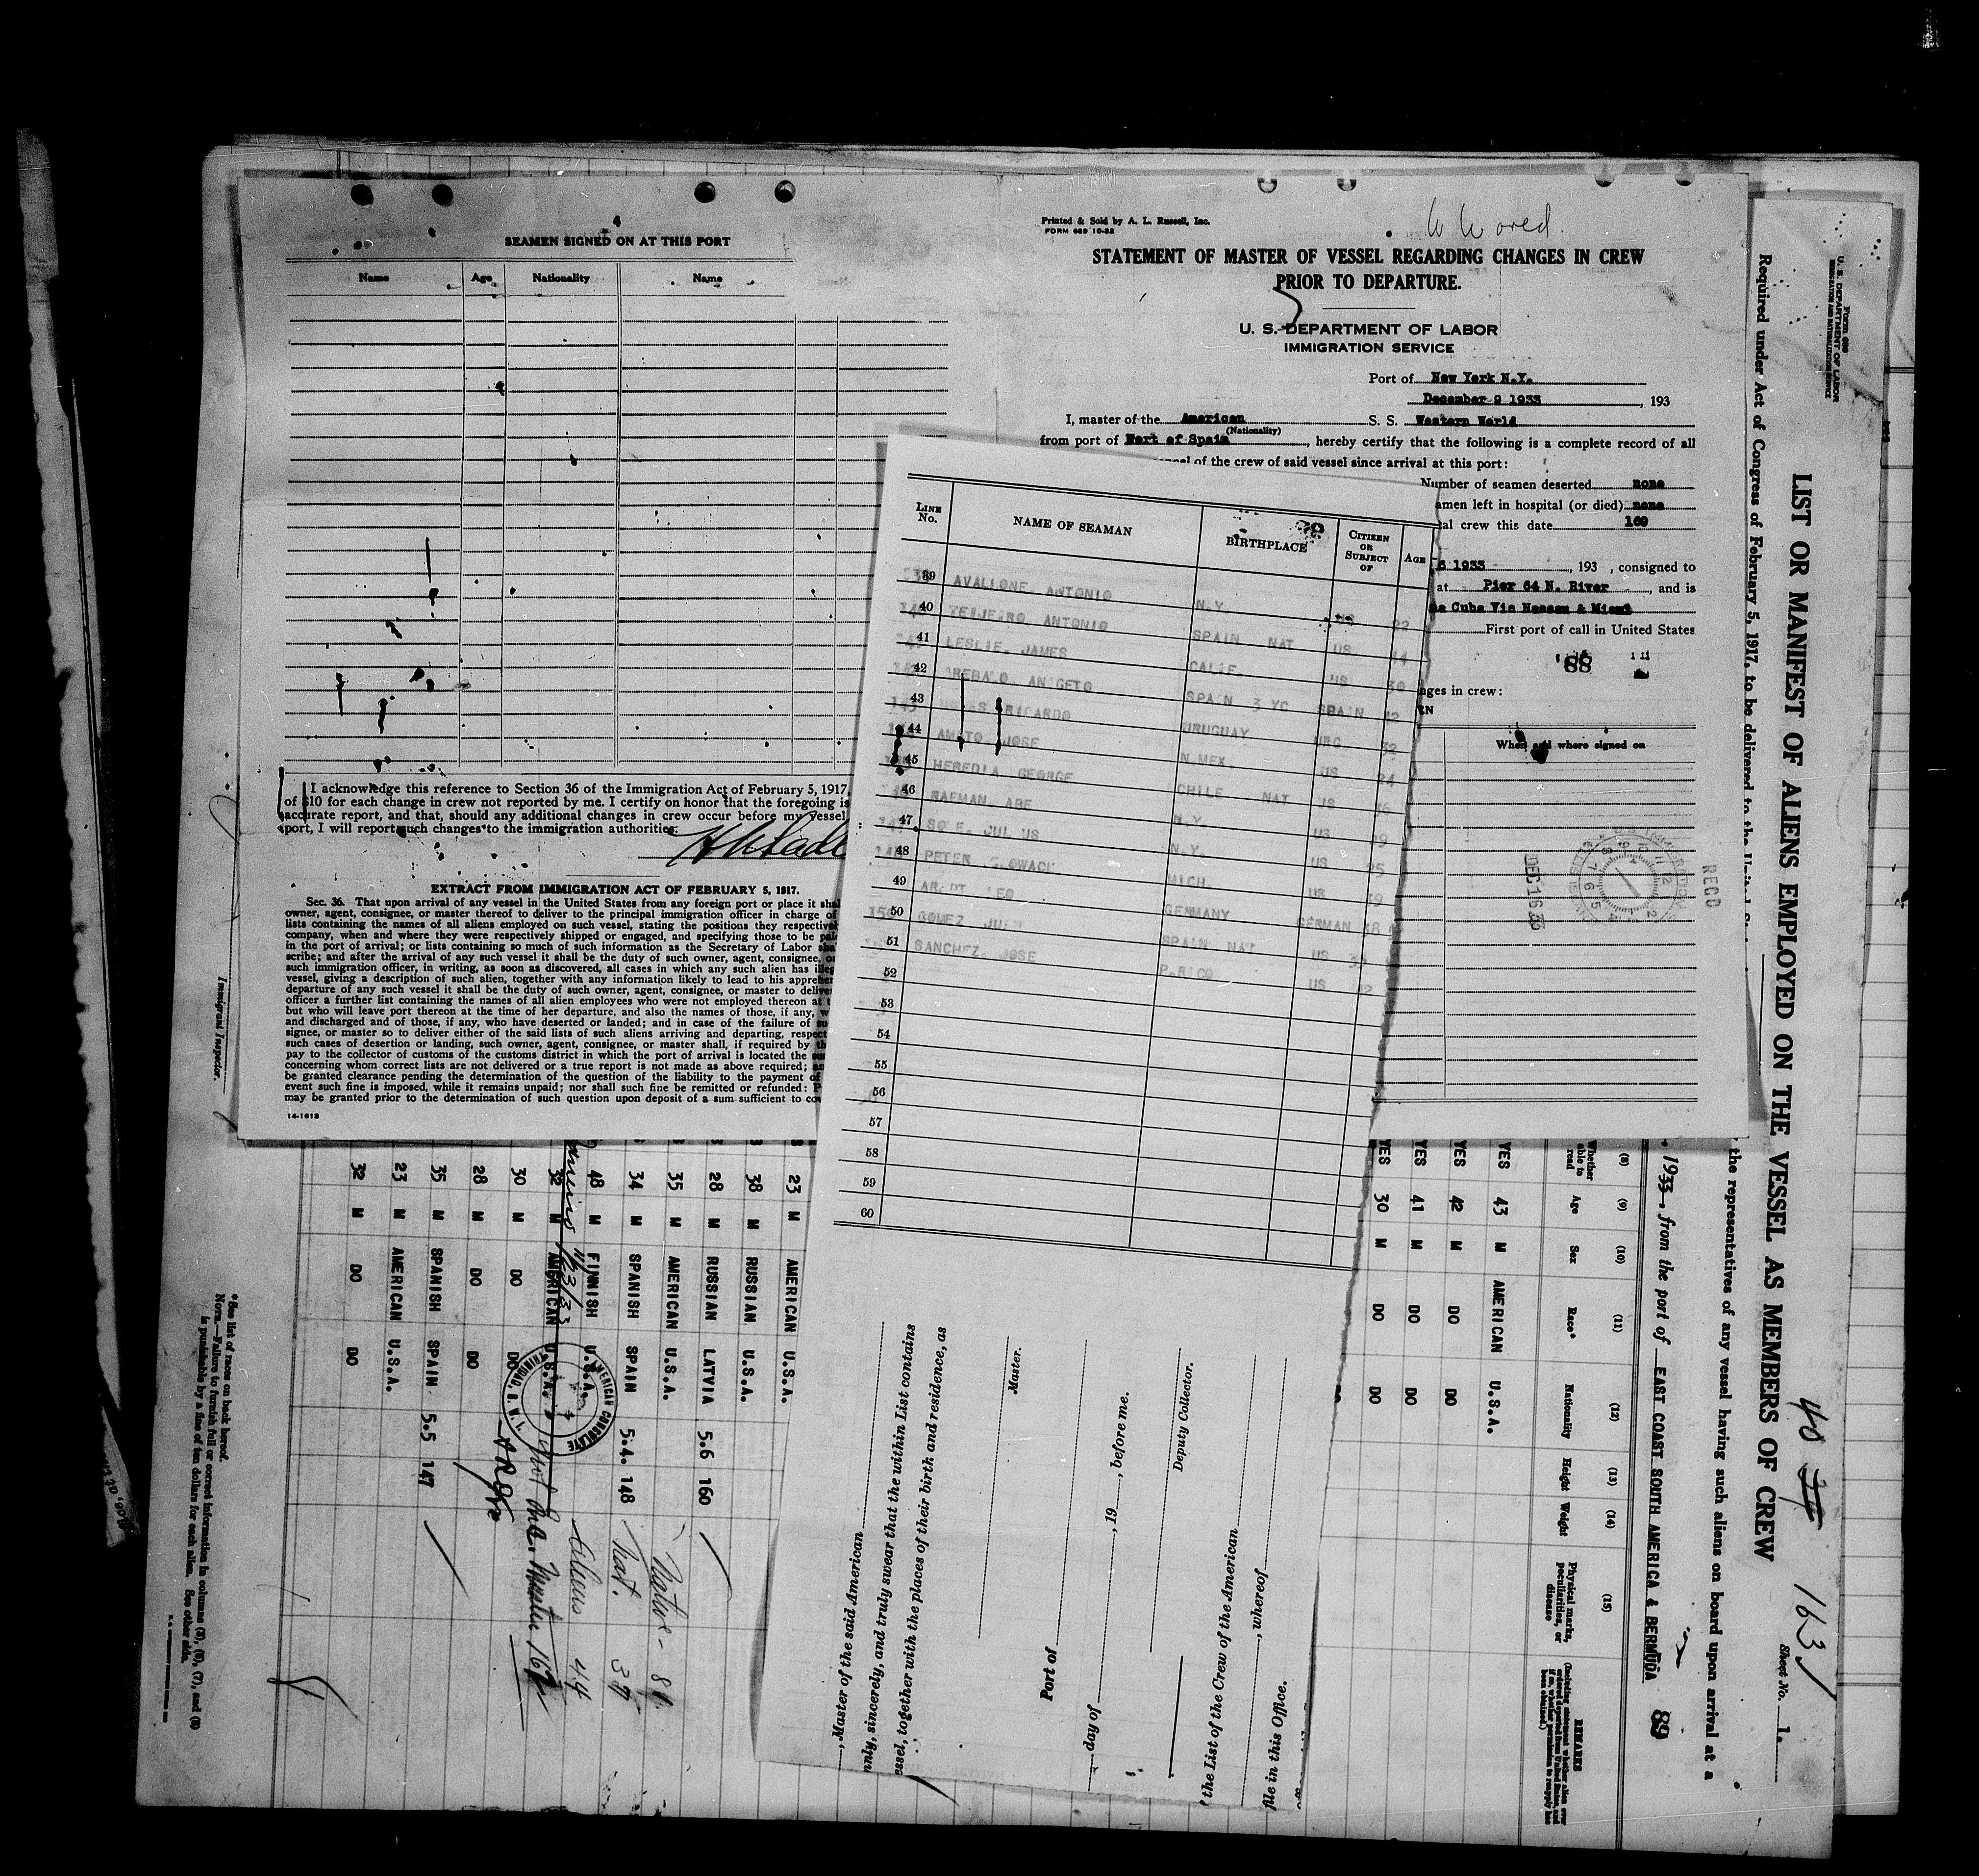 4
SEAMEN SIGNED ON AT THIS PORT
Name Age Nationality Name
I acknowledge this reference to Section 36 of the Immigration Act of February 5, 1917,
of $10 for each change in crew not reported by me. I certify on honor that the foregoing is
accurate report, and that, should any additional changes in crew occur before my vessel
port, I will report such changes to the immigration authorities.
EXTRACT FROM IMMIGRATION ACT OF FEBRUARY 5, 1917.
Sec. 36. That upon arrival of any vessel in the United States from any foreign port or place it shal
owner, agent, consignee, or master thereof to deliver to the principal immigration officer in charge of
lists containing the names of all aliens employed on such vessel, stating the positions they respectivel
company, when and where they were respectively shipped or engaged, and specifying those to be paid
in the port of arrival; or lists containing so much of such information as the Secretary of Labor sha
scribe; and after the arrival of any such vessel it shall be the duty of such owner, agent, consignee, or
such immigration officer, in writing, as soon as discovered, all cases in which any such alien has illeg
vessel, giving a description of such alien, together with any information likely to lead to his apprehen
departure of any such vessel it shall be the duty of such owner, agent, consignee, or master to deliver
officer a further list containing the names of all alien employees who were not employed thereon at t
but who will leave port thereon at the time of her departure, and also the names of those, if any, w
and discharged and of those, if any, who have deserted or landed; and in case of the failure of su
signee, or master so to deliver either of the said lists of such aliens arriving and departing, respect
such cases of desertion or landing, such owner, agent, consignee, or master shall, if required by th
pay to the collector of customs of the customs district in which the port of arrival is located the su
concerning whom correct lists are not delivered or a true report is not made as above required; an
be granted clearance pending the determination of the question of the liability to the payment of
event such fine is imposed, while it remains unpaid; nor shall such fine be remitted or refunded: P
may be granted prior to the determination of such question upon deposit of a sum sufficient to cov
14-1613
Printed & Sold by A. L. Russell, Inc.
FORM 689 10-32
STATEMENT OF MASTER OF VESSEL REGARDING CHANGES IN CREW
PRIOR TO DEPARTURE.
U. S. DEPARTMENT OF LABOR
IMMIGRATION SERVICE
Port of New York N.Y.
December 9 1933, 193
I, master of the American S. S. Western World
(Nationality)
from port of of Spain, hereby certify that the following is a complete record of all
of the crew of said vessel since arrival at this port:
Number of seamen deserted none
amen left in hospital (or died) none
tal crew this date 169
1933, 193 , consigned to
at Pier 64 N. River, and is
Cuba Via Nassau & Miami
First port of call in United States
nges in crew:
When and where signed on
DEC 16 33
RECD
LINE No. NAME OF SEAMAN BIRTHPLACE CITIZEN OR SUBJECT OF AGE
39 AVALLONE, ANTONIO N.Y. US 22
40 TEIJEIRO, ANTONIO SPAIN NAT US 44
41 LESLIE, JAMES CALIF. US 30
42 AREBALO, ANICETO SPAIN 3 YC SPAIN 42
43 RICARDO URUGUAY URG 32
44 AMATO, JOSE N.MEX. US 24
45 HEREDIA, GEORGE CHILE NAT US
46 RAFMAN, ABE N.Y. US
47 N.Y. US 25
48 PETER MICH. US
49 LEO GERMANY GERMAN
50 GOMEZ SPAIN NAT US
51 SANCHEZ, JOSE P.RICO US
52
53
54
55
56
57
58
59
60
, Master of the said American
nly, sincerely, and truly swear that the within List contains
essel, together with the places of their birth and residence, as
Master.
Port of
day of , 19 , before me.
Deputy Collector.
the List of the Crew of the American
, whereof
file in this Office.
Form 689
U. S. DEPARTMENT OF LABOR
IMMIGRATION AND NATURALIZATION SERVICE
LIST OR MANIFEST OF ALIENS EMPLOYED ON THE VESSEL AS MEMBERS OF CREW
Required under Act of Congress of February 5, 1917, to be delivered to the United
the representatives of any vessel having such aliens on board upon arrival at a
40 163
Sheet No. 1.
1933, from the port of EAST COAST SOUTH AMERICA & BERMUDA 89
(8) Whether able to read
(9) Age
(10) Sex
(11) Race*
(12) Nationality
(13) Height
(14) Weight
(15) Physical marks, peculiarities, or disease
REMARKS
YES 43 M AMERICAN U.S.A.
YES 42 M DO DO
YES 41 M DO DO
YES 30 M DO DO
23 M AMERICAN U.S.A.
38 M RUSSIAN U.S.A.
28 M RUSSIAN LATVIA 5.6 160
35 M AMERICAN U.S.A.
34 M SPANISH SPAIN 5.4. 148
48 M FINNISH U.S.A.
32 M AMERICAN U.S.A.
30 M DO DO
28 M DO DO
35 M SPANISH SPAIN 5.5 147
23 M AMERICAN U.S.A.
32 M DO DO
AMERICAN CONSULATE
TRINIDAD, B. W. I.
Nat. 37
Aliens 44
Immigrant Inspector.
*See list of races on back hereof.
NOTE.—Failure to furnish full or correct information in columns (3), (6), (7), and (8)
is punishable by a fine of ten dollars for each alien. See other side.